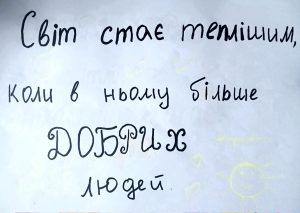 Світ стає теплішим,
коли в ньому більше
ДОБРИХ
людей.